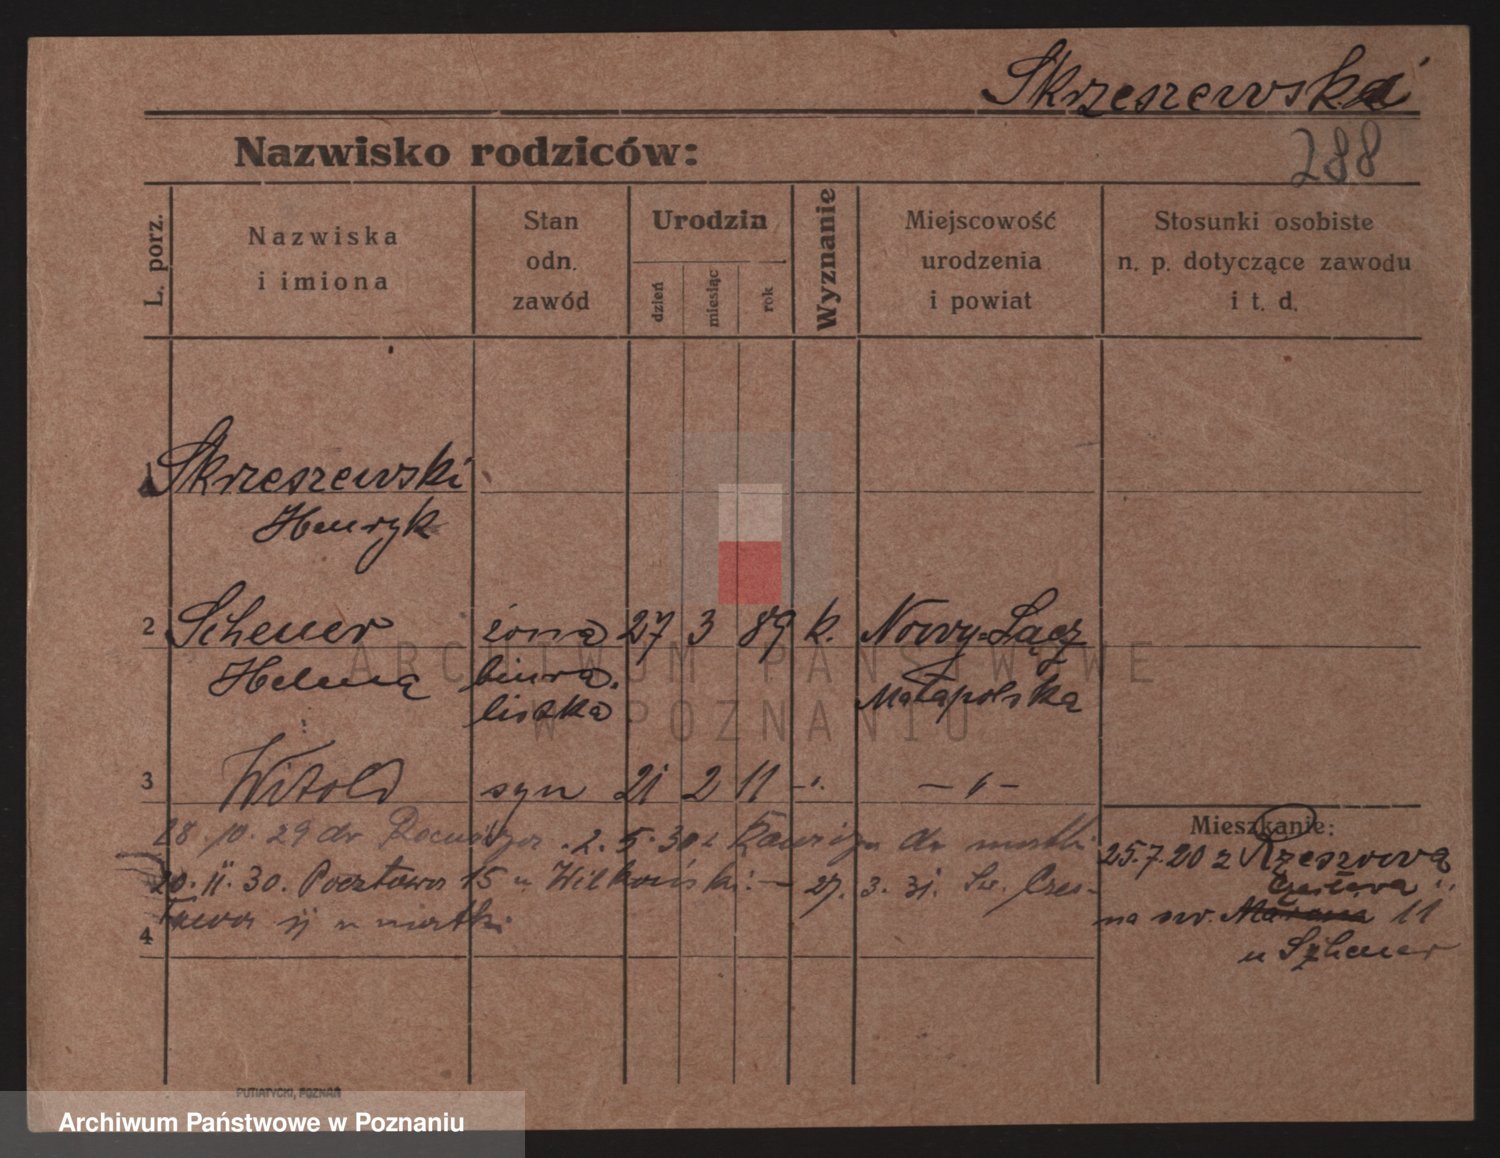 Skrzeszewska
288
Nazwisko rodziców:
L. porz.
Nazwiska
i imiona
Stan
odn.
zawód
Urodzin
dzień
miesiąc
rok
Wyznanie
Miejscowość
urodzenia
i powiat
Stosunki osobiste
n. p. dotyczące zawodu
i t. d.
1 Skrzeszewski
Henryk
2 Scheuer żona 27 3 89 k. Nowy-Sącz
Helena biura-
listka Małopolska
3 Witold syn 21 2 11 -"- -"-
28.10.29 do 2.5.30 z do matki
20.11.30. Pocztowa 15 u 27.3.31. Św. Czes-
ława 11 u matki
4
Mieszkanie:
25.7.20 z Rzeszowa
Czesława
na św. 11
u Scheuer
PUTIATYCKI, POZNAŃ
ARCHIWUM PAŃSTWOWE
W POZNANIU
Archiwum Państwowe w Poznaniu